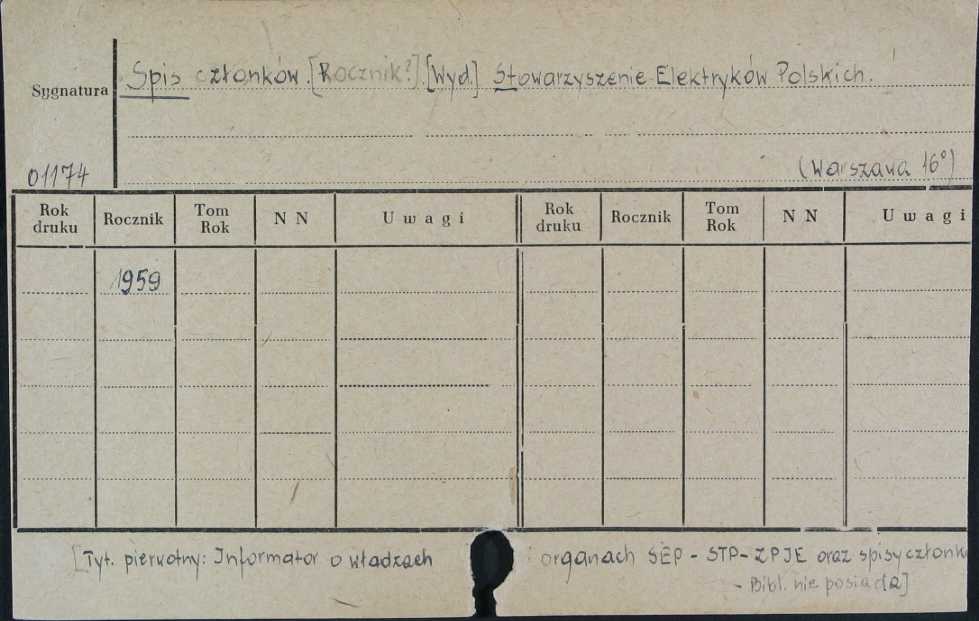 Spis członków. [Rocznik?]. [Wyd.] Stowarzyszenie Elektryków Polskich.
Sygnatura
01174
(Warszawa 16°)
Rok druku Rocznik Tom Rok N N Uwagi Rok druku Rocznik Tom Rok N N Uwagi
1959
[Tyt. pierwotny: Informator o władzach organach SEP - STP - ZPJE oraz spisy członk
- Bibl. nie posiada]